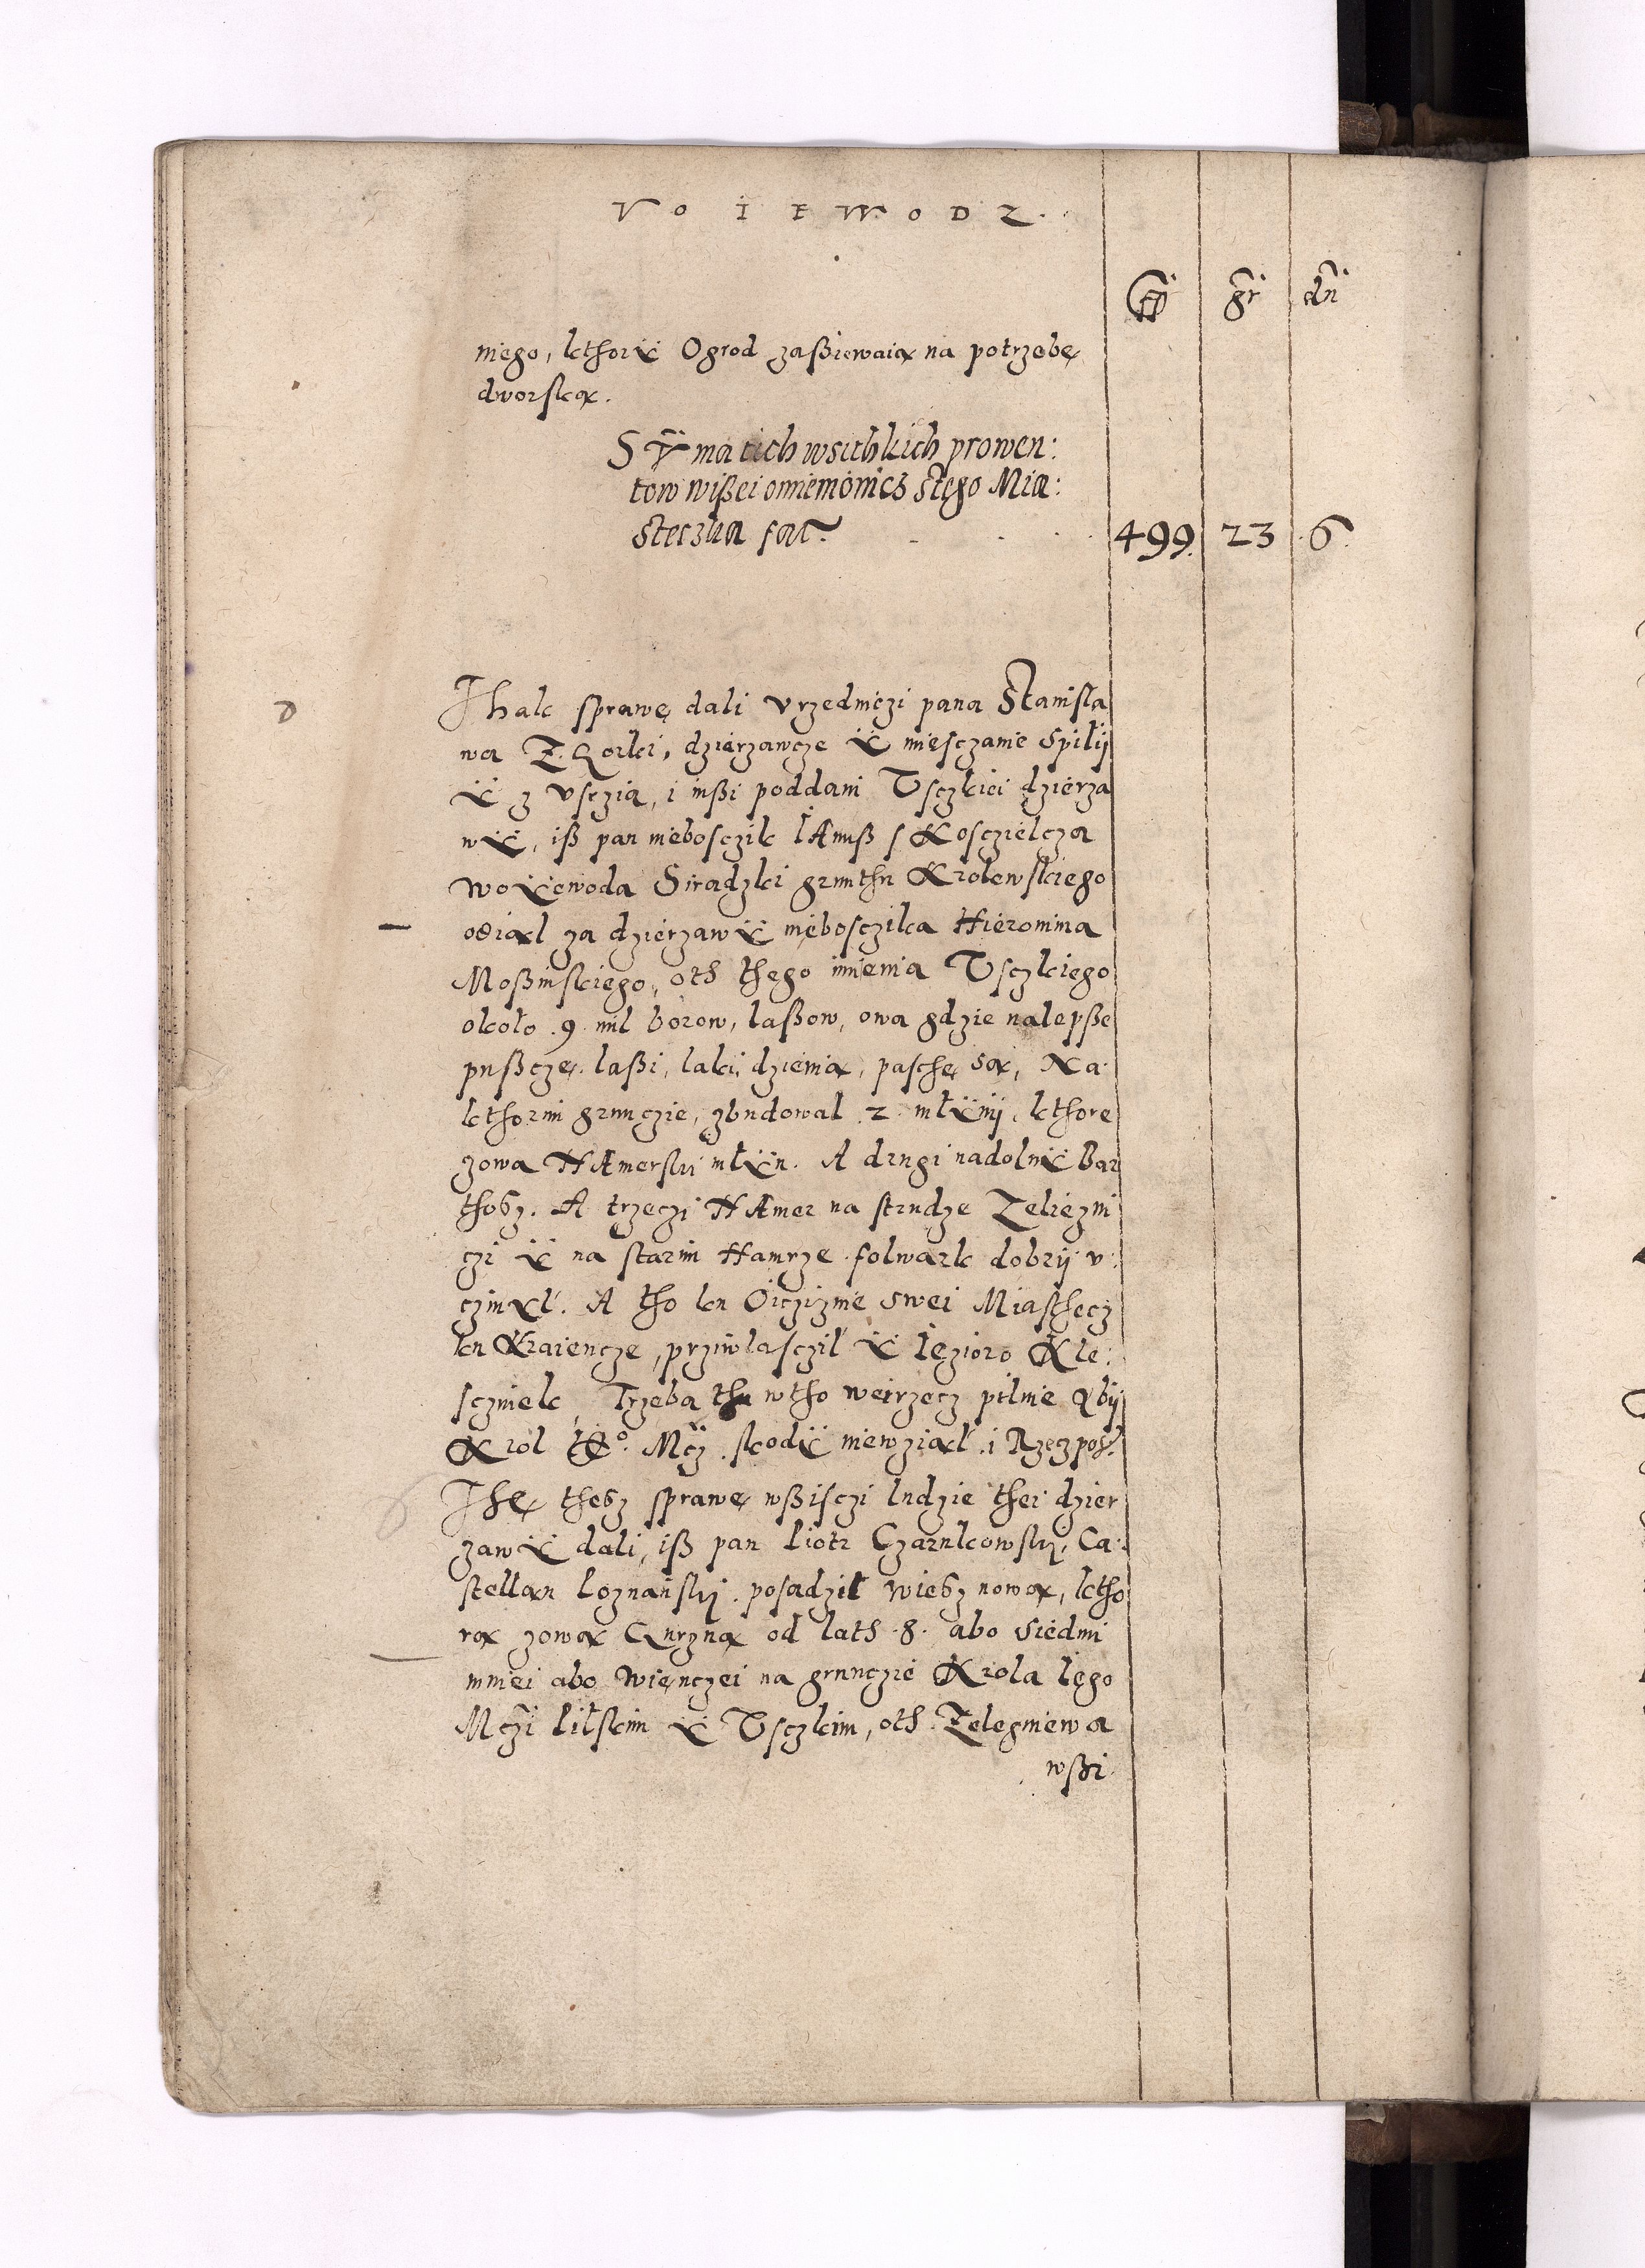 VOIEWODZ.
fl gr dn
niego, kthorÿ Ogrod zaßiewaią na potrzebę
dworską.
Sÿma tich wsithkich prowen:
tow wißei omiemonics stego Mia:
steczka fac. 499. 23 .6.
D
Thak sprawę dali vrzednicżi pana Stanisła
wa Z Gorki, dzierzawcze ÿ miesczanie spiłÿ
ÿ z vsczia, i inßi poddani Vsczkiei dzierza
wÿ, iß pan niebosczik IAnuß s Kosczielcza
woÿewoda Siradzki grunthu Krolewskiego
odiął za dzierzawÿ niebosczika Hieronima
Moßinskiego, oth thego imienia Vsczkiego
około .9. mil borow, laßow, owa gdzie nalepße
pußcze, laßi, laki, dzienia, pasche są, Na
kthorim grunczie, zbudował .2. młÿnÿ, kthore
zowa HAmerskÿ młÿn. A drugi nadolnÿ Bar
thosz. A trzeczi HAmer na strudze Zeliezni
czi ÿ na starim Hamrze folwark dobrÿ v:
czinÿł. A tho ku Oiczizni swei Miasthecz
ku Kraiencze, przÿwlascził ÿ Iezioro Kle:
scznielc, Trzeba thu wtho weirzecz pilnie Abÿ
Krol Iº. Mcz. skodÿ niewziął i Rzeczpos.
Thę thesz sprawę wßisczi ludzie thei dzier
zawÿ dali, iß pan Piotr Czarnkowskÿ, Ca:
stellan Poznanskÿ. posadził wiesz nową, ktho
rą zową Gurzną od lath .8. abo siedmi
mniei abo wienczei na grunczie Krola Iego
Mczi Pilskim ÿ Vsczkim, oth Zelegniewa
wßi